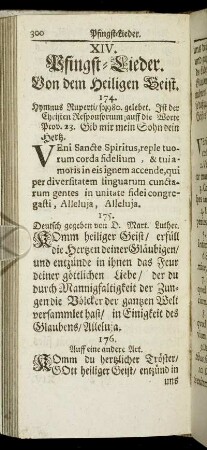 300 Pfingst-Lieder.
XIV.
Pfingst-Lieder.
Von dem Heiligen Geist.
174.
Hymnus Ruperti, so 980. gelebet. Ist der
Christen Responsorium auff die Worte
Prov. 23. Gib mir mein Sohn dein
Hertz.
VEni Sancte Spiritus, reple tuo
rum corda fidelium, & tui a-
moris in eis ignem accende, qui
per diversitatem linguarum cuncta-
rum gentes in unitate fidei congre-
gasti, Alleluja, Alleluja.
175.
Deutsch gegeben von D. Mart. Luther.
KOmm heiliger Geist/ erfüll
die Hertzen deiner Gläubigen/
und entzünde in ihnen das Feur
deiner göttlichen Liebe/ der du
durch Mannigfaltigkeit der Zun-
gen die Völcker der gantzen Welt
versammlet hast/ in Einigkeit des
Glaubens/ Alleluja.
176.
Auff eine andere Art.
KOmm du hertzlicher Tröster/
GOtt heiliger Geist/ entzünd in
uns